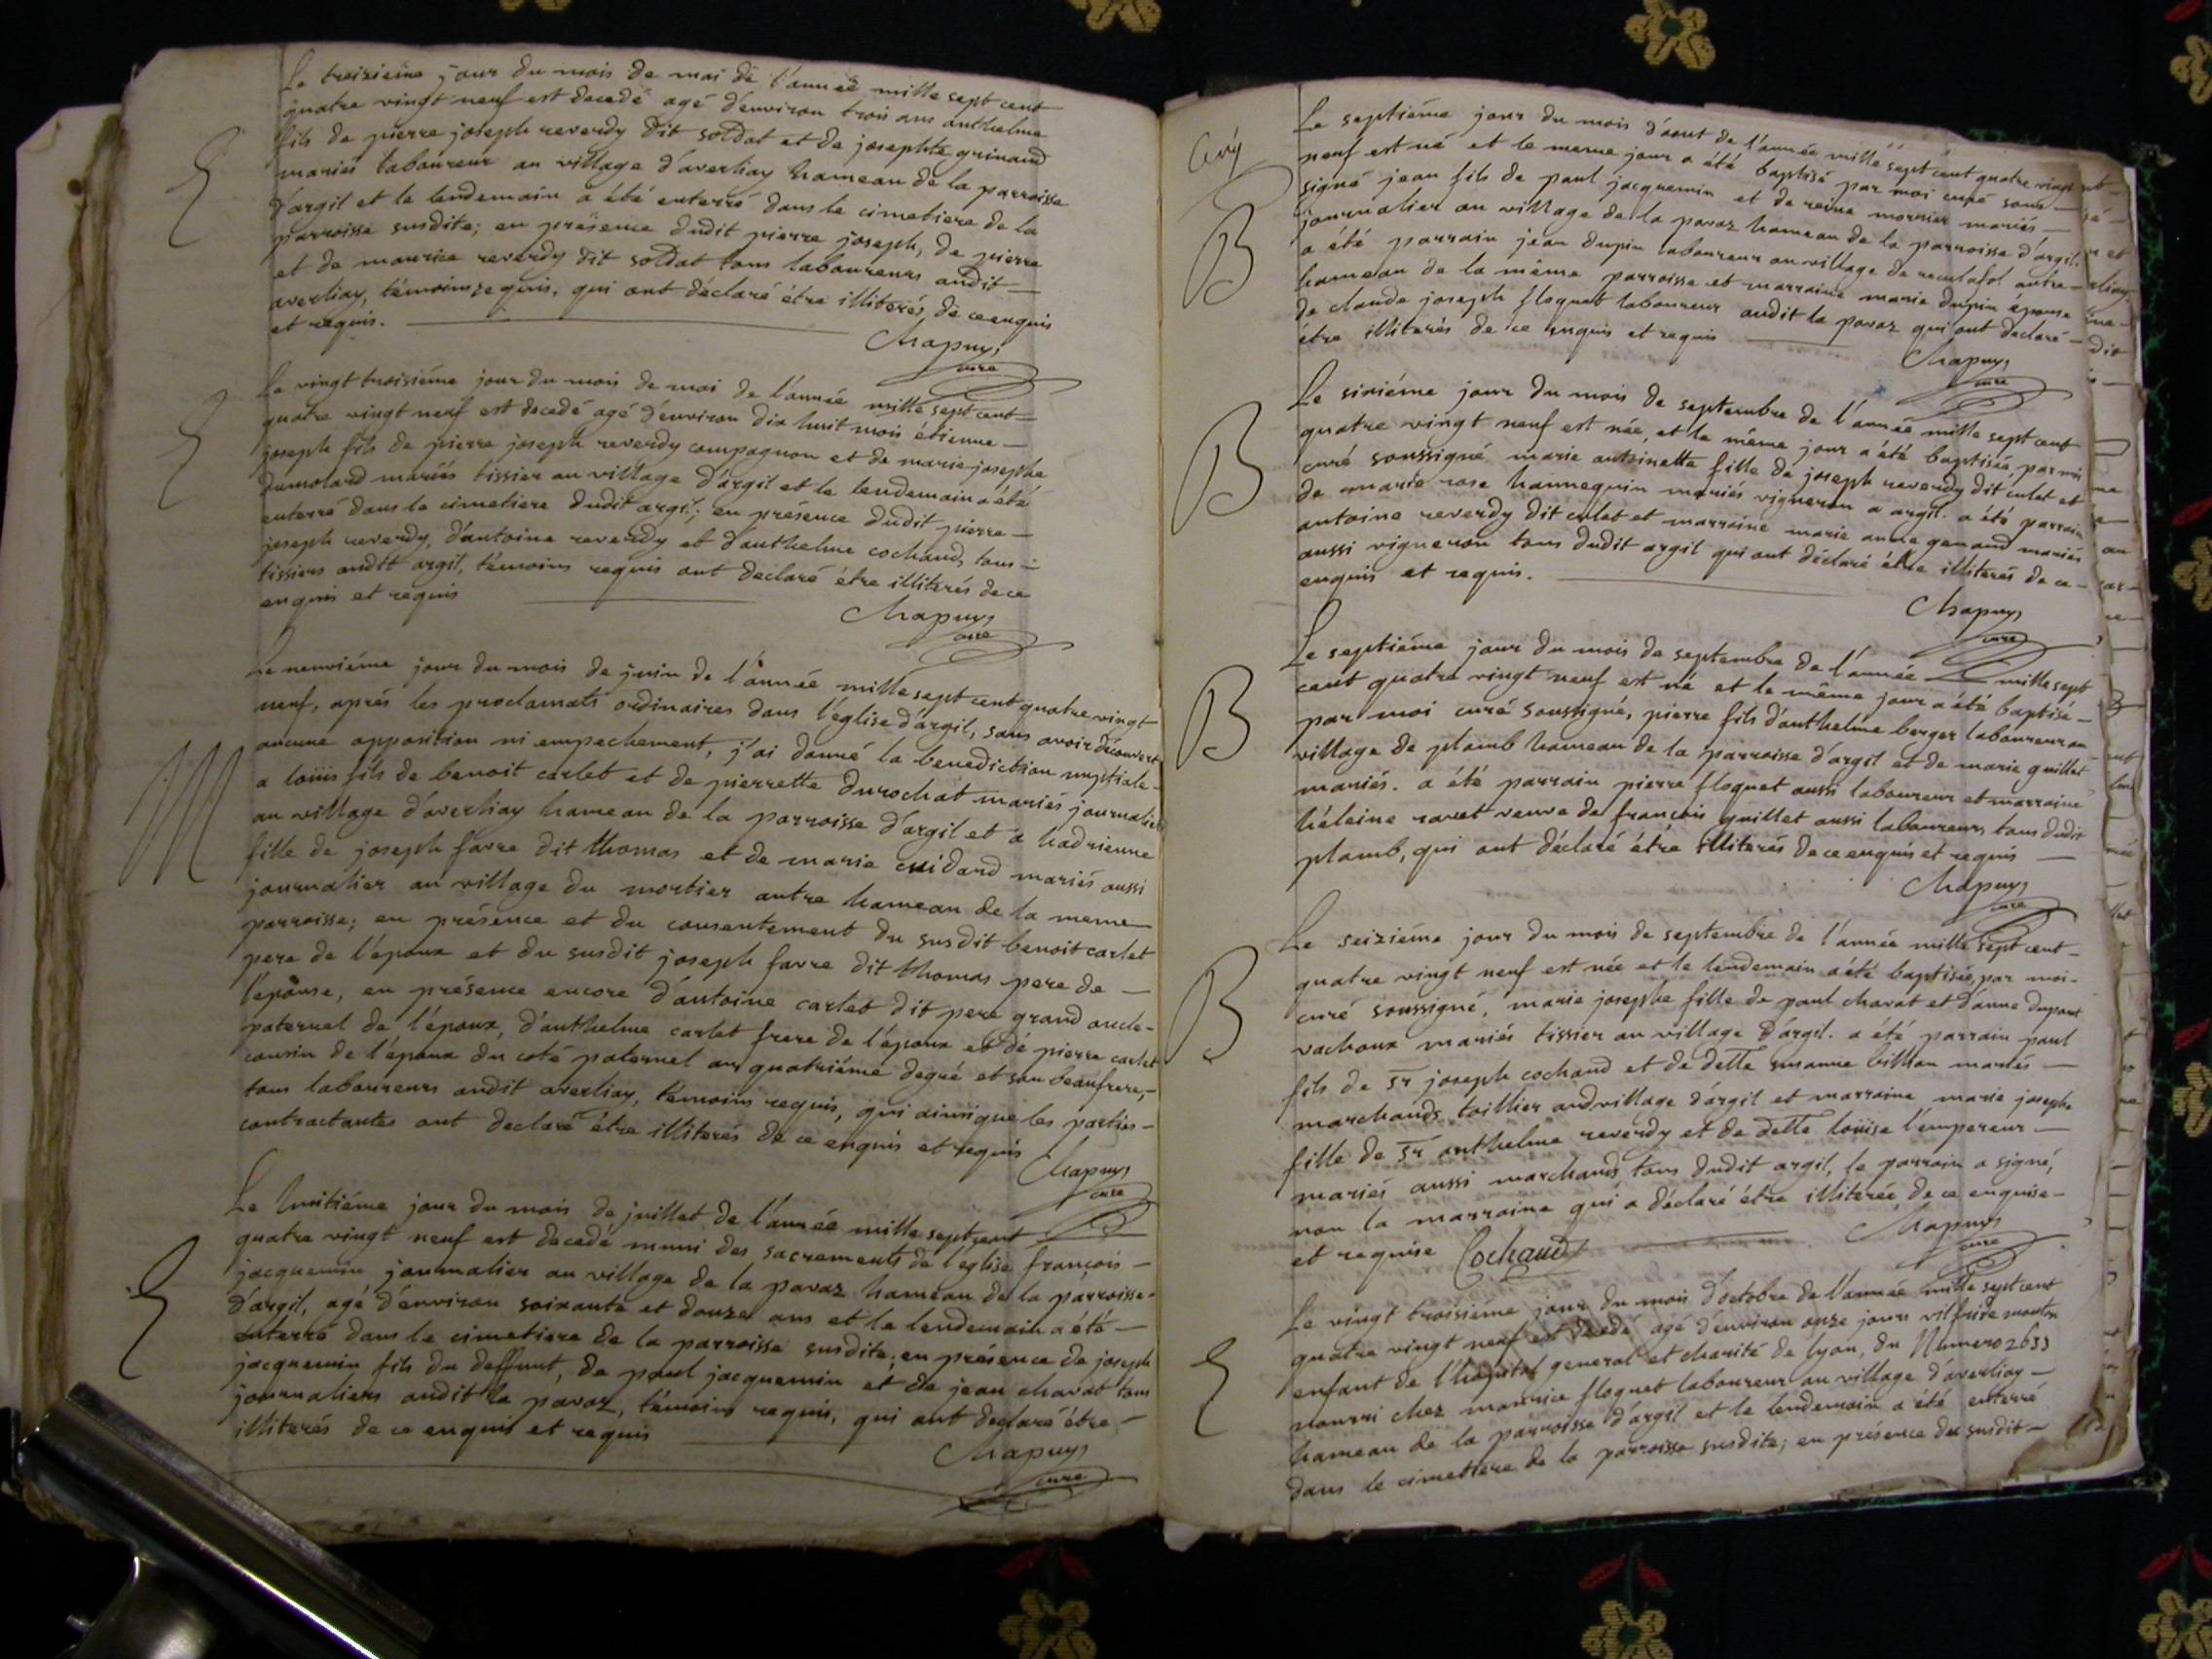 Le treizieme jour du mois de mai de l'année mille sept cent
quatre vingt neuf est decedé agé d'environ trois ans anthelme
fils de pierre joseph reverdy dit soldat et de josephte guinand
mariés laboureur au village d'averliay hameau de la parroisse
d'argil et le lendemain a été enterré dans le cimetiere de la
parroisse susdite; en présence dudit pierre joseph, de pierre
et de maurice reverdy dit soldat tous laboureurs audit
averliay, témoins requis, qui ont déclaré étre illiterés, de ce enquis
et requis.
Chapuys
curé
Le vingt troisiéme jour du mois de mai de l'année mille sept cent
quatre vingt neuf est decedé agé d'environ dix huit mois étienne
joseph fils de pierre joseph reverdy compagnon et de marie josephe
dumolard mariés tissier au village d'argil et le lendemain a été
enterré dans le cimetiere dudit argil; en présence dudit pierre
joseph reverdy, d'antoine reverdy et d'anthelme cochand, tous
tissiers audit argil, témoins requis ont declaré étre illiterés de ce
enquis et requis
Chapuys
curé
M
Le neuviéme jour du mois de juin de l'année mille sept cent quatre vingt
neuf, aprés les proclamats ordinaires dans l'église d'argil, sans avoir découvert
aucune opposition ni empechement, j'ai donné la benediction nuptiale
a loüis fils de benoit carlet et de pierrette durochat mariés journalier
au village d'averliay hameau de la parroisse d'argil et a hadrienne
fille de joseph favre dit thomas et de marie cuidard mariés aussi
journalier au village du mortier autre hameau de la meme
parroisse; en présence et du consentement du susdit benoit carlet
pere de l'époux et du susdit joseph favre dit thomas pere de
l'épouse, en présence encore d'antoine carlet dit pere grand oncle
paternel de l'époux, d'anthelme carlet frere de l'époux et de pierre carlet
cousin de l'époux du coté paternel au quatriéme degré et son beaufrere,
tous laboureurs audit averliay, témoins requis, qui ainsi que les parties
contractantes ont declaré étre illiterés de ce enquis et requis
Chapuys
curé
Le huitiéme jour du mois de juillet de l'année mille sept cent
quatre vingt neuf est decedé muni des sacrements de l'eglise françois
jacquemin journalier au village de la pavaz hameau de la parroisse
d'argil, agé d'environ soixante et douze ans et le lendemain a été
enterré dans le cimetiere de la parroisse susdite; en présence de joseph
jacquemin fils du deffunt, de paul jacquemin et de jean chavat tous
journaliers audit la pavaz, témoins requis, qui ont declaré étre
illiterés de ce enquis et requis
Chapuys
curé
B
Le septiéme jour du mois d'aout de l'année mille sept cent quatre vingt
neuf est né et le meme jour a été baptisé par moi curé sous
signé jean fils de paul jacquemin et de reine mornier mariés
journalier au village de la pavaz hameau de la parroisse d'argil.
a été parrain jean dupin laboureur au village de reculafol autre
hameau de la méme parroisse et marraine marie dupin épouse
de claude joseph floquet laboureur audit la pavaz qui ont declaré
étre illiterés de ce enquis et requis
Chapuys
curé
B
Le sixiéme jour du mois de septembre de l'année mille sept cent
quatre vingt neuf est née, et le même jour a été baptisée par moi
curé soussigné marie antoinette fille de joseph reverdy dit culet et
de marie rose hannequin mariés vigneron a argil. a été parrain
antoine reverdy dit culet et marraine marie anne genand mariés
aussi vigneron tous dudit argil qui ont déclaré étre illiterés de ce
enquis et requis.
Chapuys
curé
B
Le septiéme jour du mois de septembre de l'année mille sept
cent quatre vingt neuf est né et le même jour a été baptisé
par moi curé soussigné, pierre fils d'anthelme berger laboureur au
village de plomb hameau de la parroisse d'argil et de marie guillet
mariés. a été parrain pierre floquet aussi laboureur et marraine
héleine ravet veuve de françois guillet aussi laboureurs tous dudit
plomb, qui ont déclaré étre illiterés de ce enquis et requis
Chapuys
curé
B
Le seiziéme jour du mois de septembre de l'année mille sept cent
quatre vingt neuf est née et le lendemain a été baptisée, par moi
curé soussigné, marie josephe fille de paul chavat et d'anne dupont
vachoux mariés tissier au village d'argil. a été parrain paul
fils de sr joseph cochand et de delle susanne billion mariés
marchands toillier au village d'argil et marraine marie josephe
fille de sr anthelme reverdy et de delle loüise l'empereur
mariés aussi marchands tous dudit argil, le parrain a signé,
non la marraine qui a déclaré étre illiterée de ce enquise
et requise Cochand
Chapuys
curé
Le vingt troisiéme jour du mois d'octobre de l'année mille sept cent
quatre vingt neuf est decedé agé d'environ onze jours
enfant de l'hopital general et charité de lyon, du Numero 2633
nourri chez maurice floquet laboureur au village d'averliay
hameau de la parroisse d'argil et le lendemain a été enterré
dans le cimetiere de la parroisse susdite; en présence du susdit